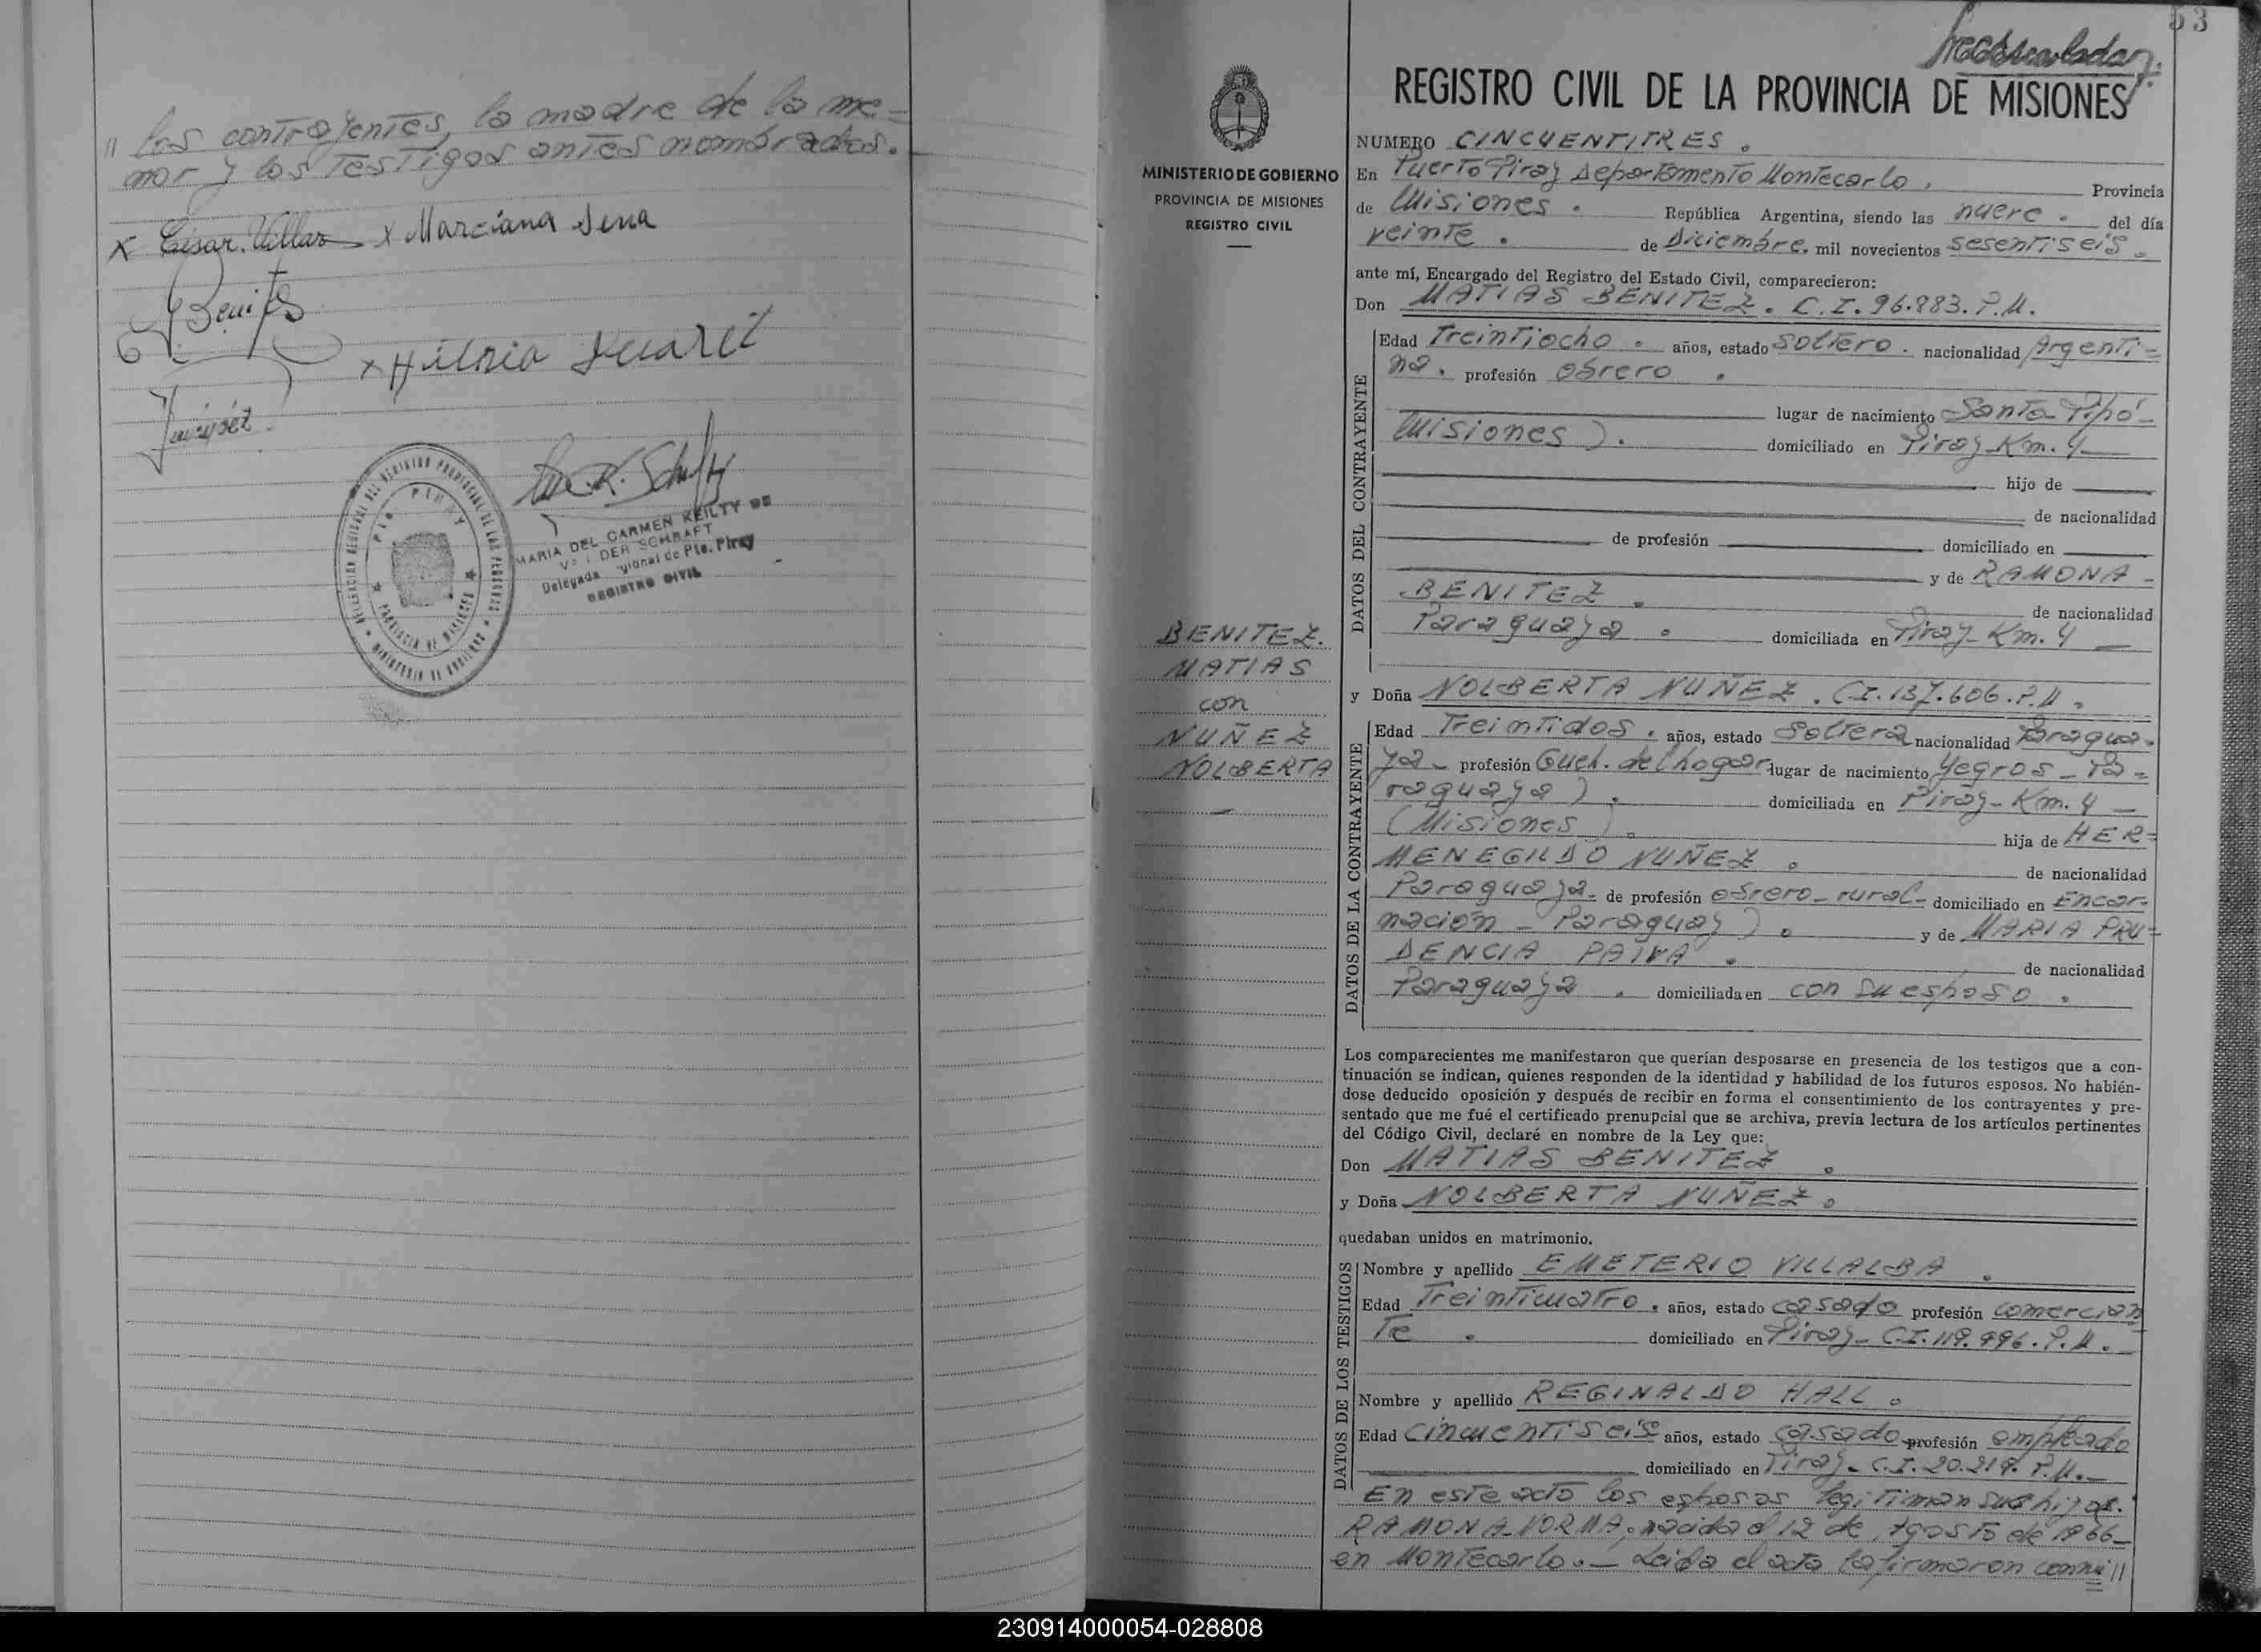 " los contrayentes, la madre de la me=
nor y los testigos antes nombrados.
x Cesar. Villar x Marciana Sena
Benites
x Hilaria
MARIA DEL CARMEN KEILTY DE
DER SCHRAFT
Delegada gional de Pto. Piray
REGISTRO CIVIL
53
REGISTRO CIVIL DE LA PROVINCIA DE MISIONES
MINISTERIO DE GOBIERNO
PROVINCIA DE MISIONES
REGISTRO CIVIL
BENITEZ.
MATIAS
con
NUÑEZ
NOLBERTA
NUMERO CINCUENTITRES.
En Puerto Piray Departamento Montecarlo. Provincia
de Misiones. República Argentina, siendo las nueve. del día
veinte. de Diciembre. mil novecientos sesentiseis.
ante mí, Encargado del Registro del Estado Civil, comparecieron:
Don MATIAS BENITEZ. C.I. 96.883. P.M.
DATOS DEL CONTRAYENTE
Edad Treintiocho. años, estado soltero. nacionalidad Argenti=
na. profesión obrero.
lugar de nacimiento Santa Pipó-
Misiones). domiciliado en Piray-Km. 4
hijo de
de nacionalidad
de profesión domiciliado en
y de RAMONA-
BENITEZ. de nacionalidad
Paraguaya. domiciliada en Piray-Km. 4
y Doña NOLBERTA NUÑEZ. C.I. 137.606. P.M.
DATOS DE LA CONTRAYENTE
Edad Treintidos. años, estado soltera nacionalidad Paragua-
ya- profesión Queh. del hogar lugar de nacimiento Yegros-Pa=
raguaya). domiciliada en Piray-Km. 4
(Misiones). hija de HER=
MENEGILDO NUÑEZ. de nacionalidad
Paraguaya- de profesión obrero-rural- domiciliado en Encar-
nación-Paraguay). y de MARIA PRU=
DENCIA PAIVA. de nacionalidad
Paraguaya. domiciliada en con su esposo.
Los comparecientes me manifestaron que querían desposarse en presencia de los testigos que a con-
tinuación se indican, quienes responden de la identidad y habilidad de los futuros esposos. No habién-
dose deducido oposición y después de recibir en forma el consentimiento de los contrayentes y pre-
sentado que me fué el certificado prenupcial que se archiva, previa lectura de los artículos pertinentes
del Código Civil, declaré en nombre de la Ley que:
Don MATIAS BENITEZ.
y Doña NOLBERTA NUÑEZ.
quedaban unidos en matrimonio.
DATOS DE LOS TESTIGOS
Nombre y apellido EMETERIO VILLALBA.
Edad Treinticuatro. años, estado casado profesión comercian
te. domiciliado en Piray-C.I. 119.996. P.M.
Nombre y apellido REGINALDO HALL.
Edad cincuentiseis años, estado casado profesión empleado
domiciliado en Piray-C.I. 20.219. P.M.-
En este acto los esposos legitiman sus hijas.
RAMONA NORMA, nacida el 12 de Agosto de 1966-
en Montecarlo.- Leida el acta la firmaron conmi //
230914000054-028808